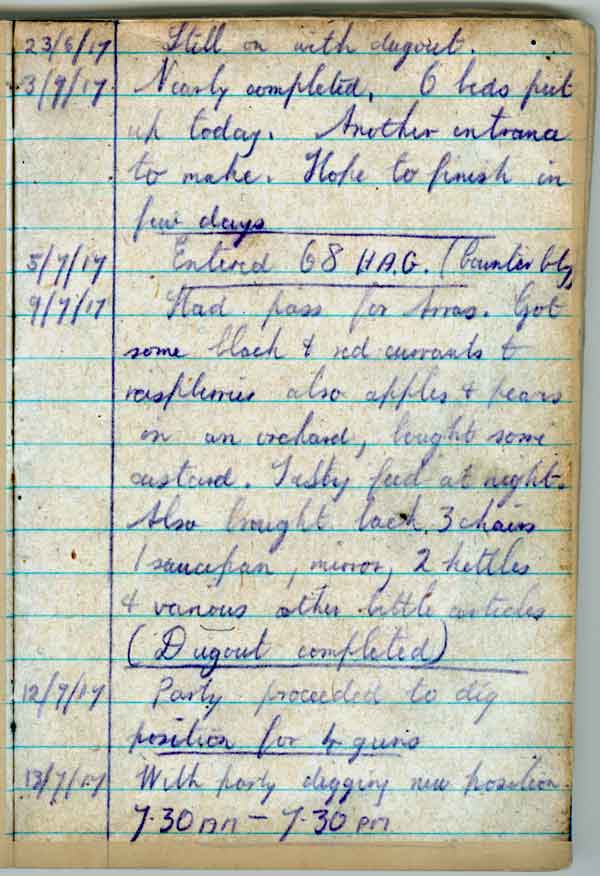 23/6/17 Still on with dugout.
3/7/17 Nearly completed. 6 beds put
up today. Another entrance
to make. Hope to finish in
few days
5/7/17 Entered 68 H.A.G. (Counter bty)
9/7/17 Had pass for Arras. Got
some black & red currants &
raspberries also apples & pears
in an orchard, bought some
custard. Tasty feed at night.
Also brought back 3 chairs
1 saucepan, mirror, 2 kettles
& various other little articles
(Dugout completed)
12/7/17 Party proceeded to dig
position for 4 guns
13/7/17 With party digging new position
7.30 AM – 7.30 PM